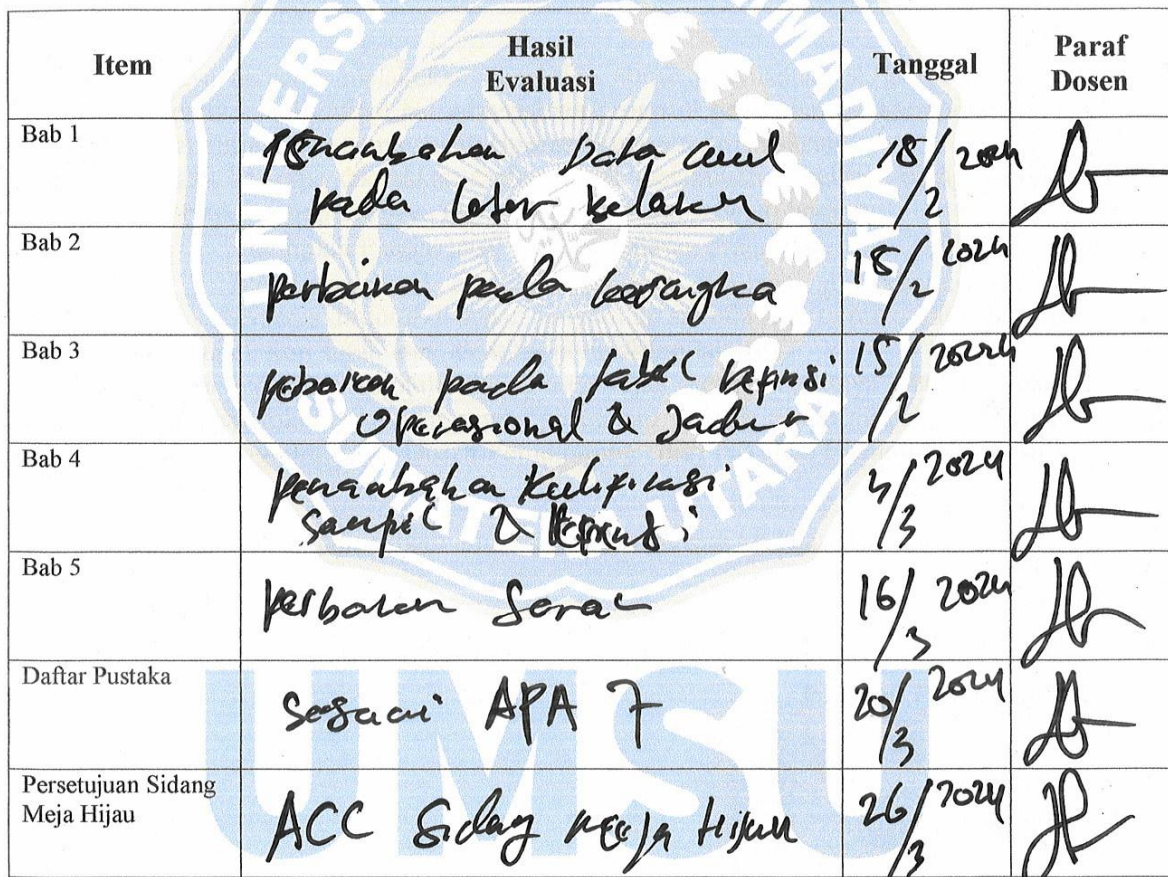 Item Hasil Evaluasi Tanggal Paraf Dosen
Bab 1 Penambahan Data awal pada latar belakang 18/2 2024
Bab 2 perbaikan pada kerangka 18/2 2024
Bab 3 perbaikan pada tabel Definisi Operasional & Jadwal 15/2 2024
Bab 4 penambahan sampel & 3 2024
Bab 5 perbaikan Saran 16/3 2024
Daftar Pustaka Sesuai APA 7 20/3 2024
Persetujuan Sidang Meja Hijau ACC Sidang Meja Hijau 26/3 2024
SUMATERA UTARA
UMSU